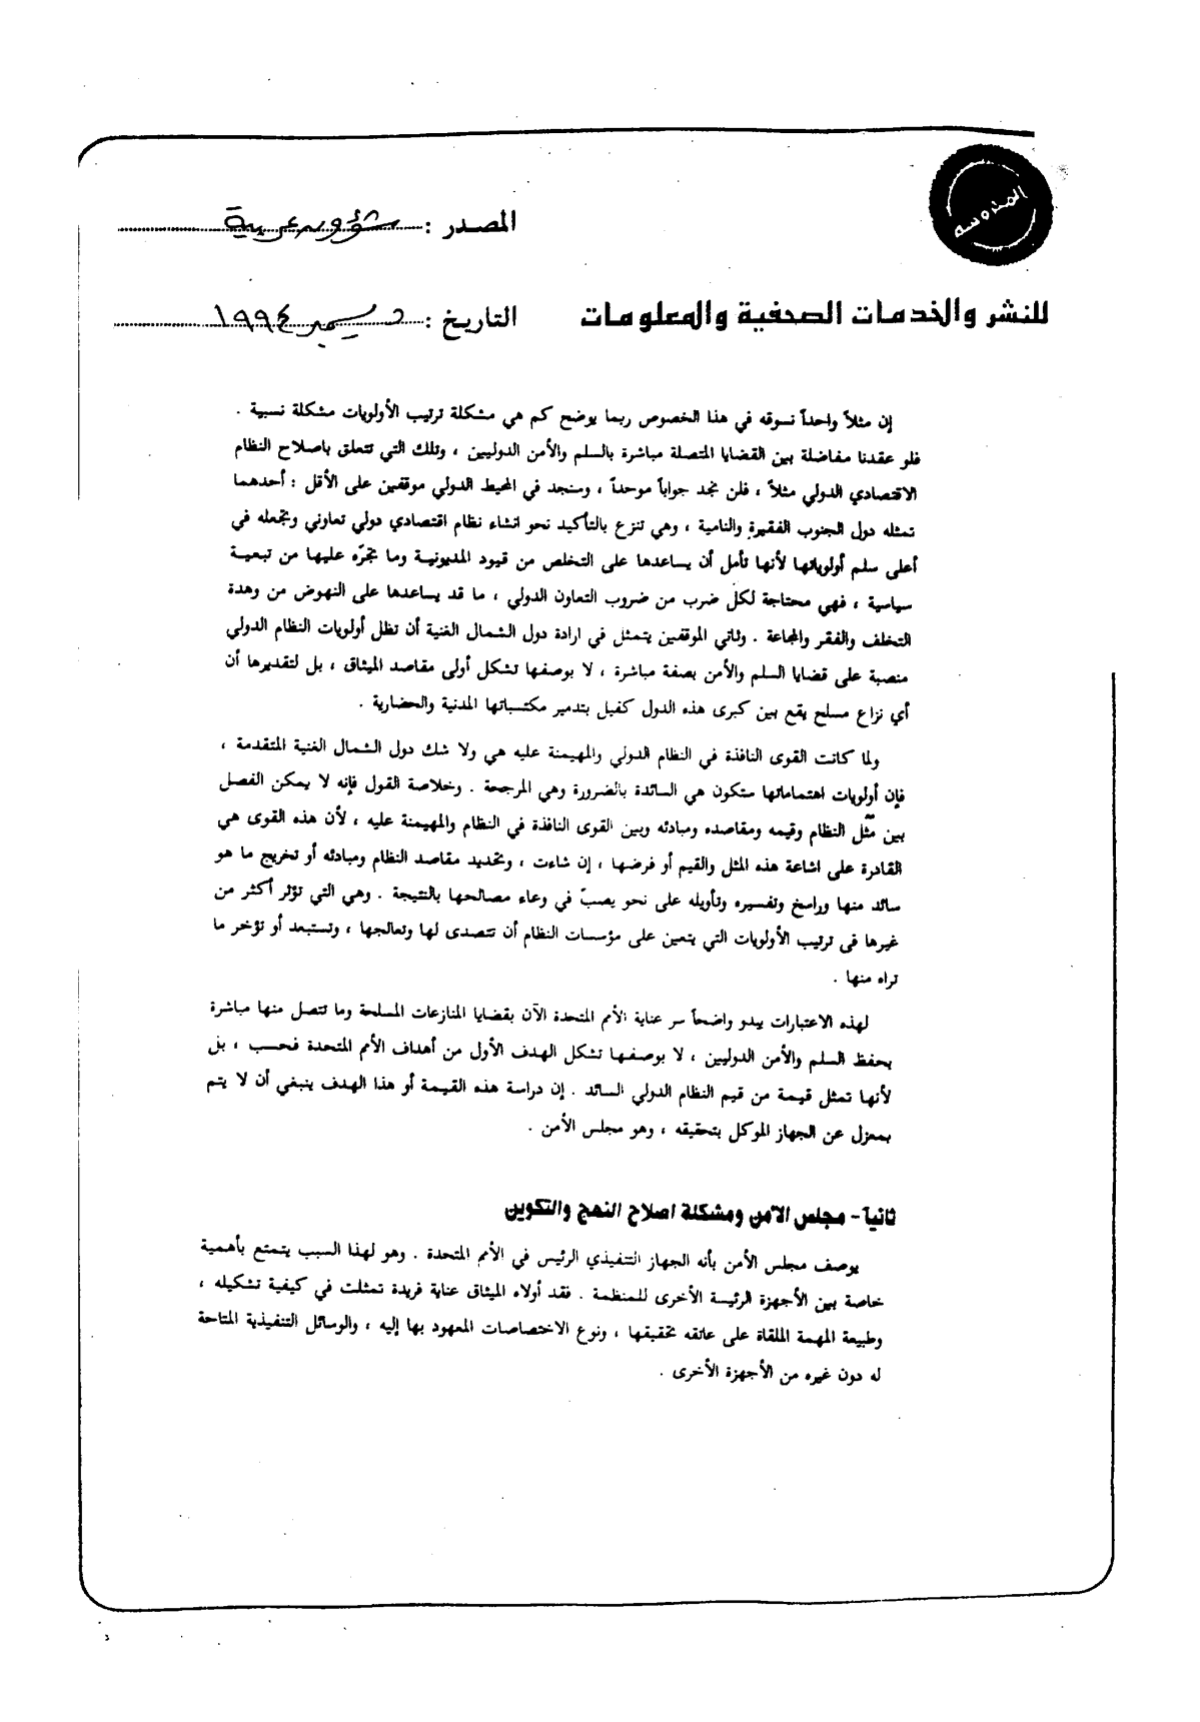 المحروسة
المصدر : شؤون عربية
للنشر والخدمات الصحفية والمعلومات
التاريخ : ديسمبر ١٩٩٤
إن مثلاً واحداً نسوقه في هذا الخصوص ربما يوضح كم هي مشكلة ترتيب الأولويات مشكلة نسبية .
فلو عقدنا مفاضلة بين القضايا المتصلة مباشرة بالسلم والأمن الدوليين ، وتلك التي تتعلق باصلاح النظام
الاقتصادي الدولي مثلاً ، فلن نجد جواباً موحداً ، وسنجد في المحيط الدولي موقفين على الأقل : أحدهما
تمثله دول الجنوب الفقيرة والنامية ، وهي تنزع بالتأكيد نحو انشاء نظام اقتصادي دولي تعاوني وتجعله في
أعلى سلم أولوياتها لأنها تأمل أن يساعدها على التخلص من قيود المديونية وما تجرّه عليها من تبعية
سياسية ، فهي محتاجة لكل ضرب من ضروب التعاون الدولي ، ما قد يساعدها على النهوض من وهدة
التخلف والفقر والمجاعة . وثاني الموقفين يتمثل في ارادة دول الشمال الغنية أن تظل أولويات النظام الدولي
منصبة على قضايا السلم والأمن بصفة مباشرة ، لا بوصفها تشكل أولى مقاصد الميثاق ، بل لتقديرها أن
أي نزاع مسلح يقع بين كبرى هذه الدول كفيل بتدمير مكتسباتها المدنية والحضارية .
ولما كانت القوى النافذة في النظام الدولي والمهيمنة عليه هي ولا شك دول الشمال الغنية المتقدمة ،
فإن أولويات اهتماماتها ستكون هي السائدة بالضرورة وهي المرجحة . وخلاصة القول فإنه لا يمكن الفصل
بين مّثل النظام وقيمه ومقاصده ومبادئه وبين القوى النافذة في النظام والمهيمنة عليه ، لأن هذه القوى هي
القادرة على اشاعة هذه المثل والقيم أو فرضها ، إن شاءت ، وتحديد مقاصد النظام ومبادئه أو تخريج ما هو
سائد منها وراسخ وتفسيره وتأويله على نحو يصبّ في وعاء مصالحها بالنتيجة . وهي التي تؤثر أكثر من
غيرها في ترتيب الأولويات التي يتعين على مؤسسات النظام أن تتصدى لها وتعالجها ، وتستبعد أو تؤخر ما
تراه منها .
لهذه الاعتبارات يبدو واضحاً سر عناية الأمم المتحدة الآن بقضايا المنازعات المسلحة وما تتصل منها مباشرة
بحفظ السلم والأمن الدوليين ، لا بوصفها تشكل الهدف الأول من أهداف الأمم المتحدة فحسب ، بل
لأنها تمثل قيمة من قيم النظام الدولي السائد . إن دراسة هذه القيمة أو هذا الهدف ينبغي أن لا يتم
بمعزل عن الجهاز الموكل بتحقيقه ، وهو مجلس الأمن .
ثانياً - مجلس الأمن ومشكلة اصلاح النهج والتكوين
يوصف مجلس الأمن بأنه الجهاز التنفيذي الرئيس في الأمم المتحدة . وهو لهذا السبب يتمتع بأهمية
خاصة بين الأجهزة الرئيسة الأخرى للمنظمة . فقد أولاه الميثاق عناية فريدة تمثلت في كيفية تشكيله ،
وطبيعة المهمة الملقاة على عاتقه تحقيقها ، ونوع الاختصاصات المعهود بها إليه ، والوسائل التنفيذية المتاحة
له دون غيره من الأجهزة الأخرى .